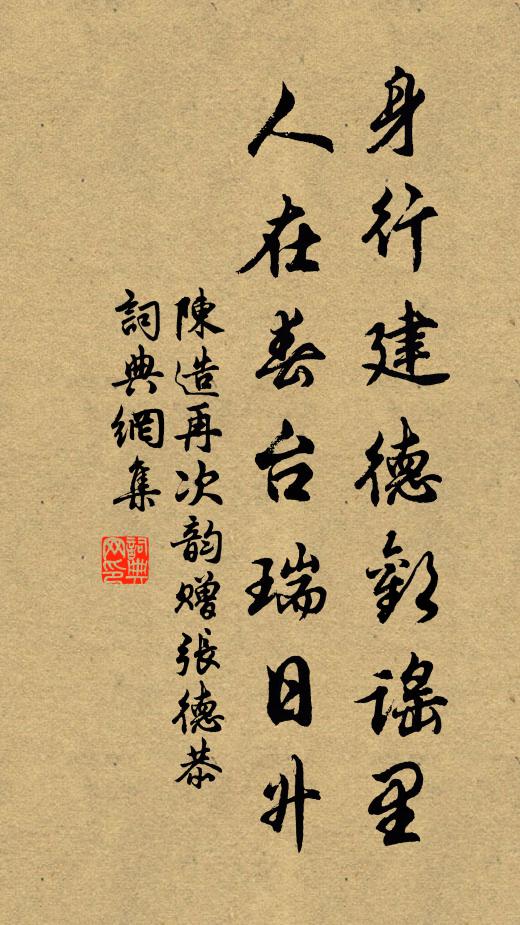 身行建德歡謠里
人在春台瑞日升
陳造再次韵贈張德恭
詞典網集
詞典网印